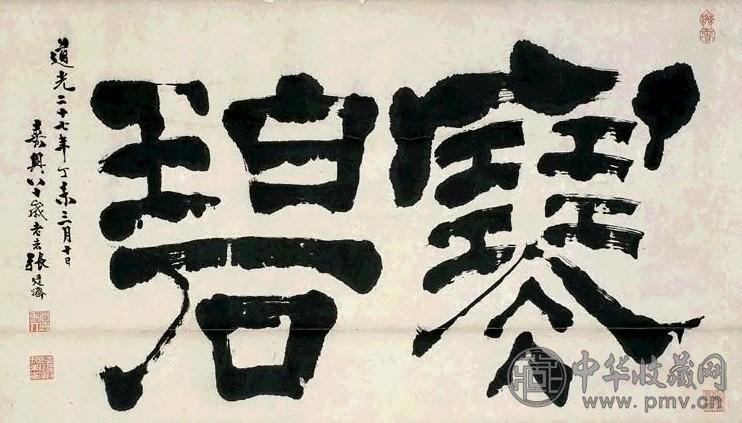 寒碧
道光二十七年丁未三月十日
嘉興八十歲老張廷濟
中华收藏网
www.pmv.cn